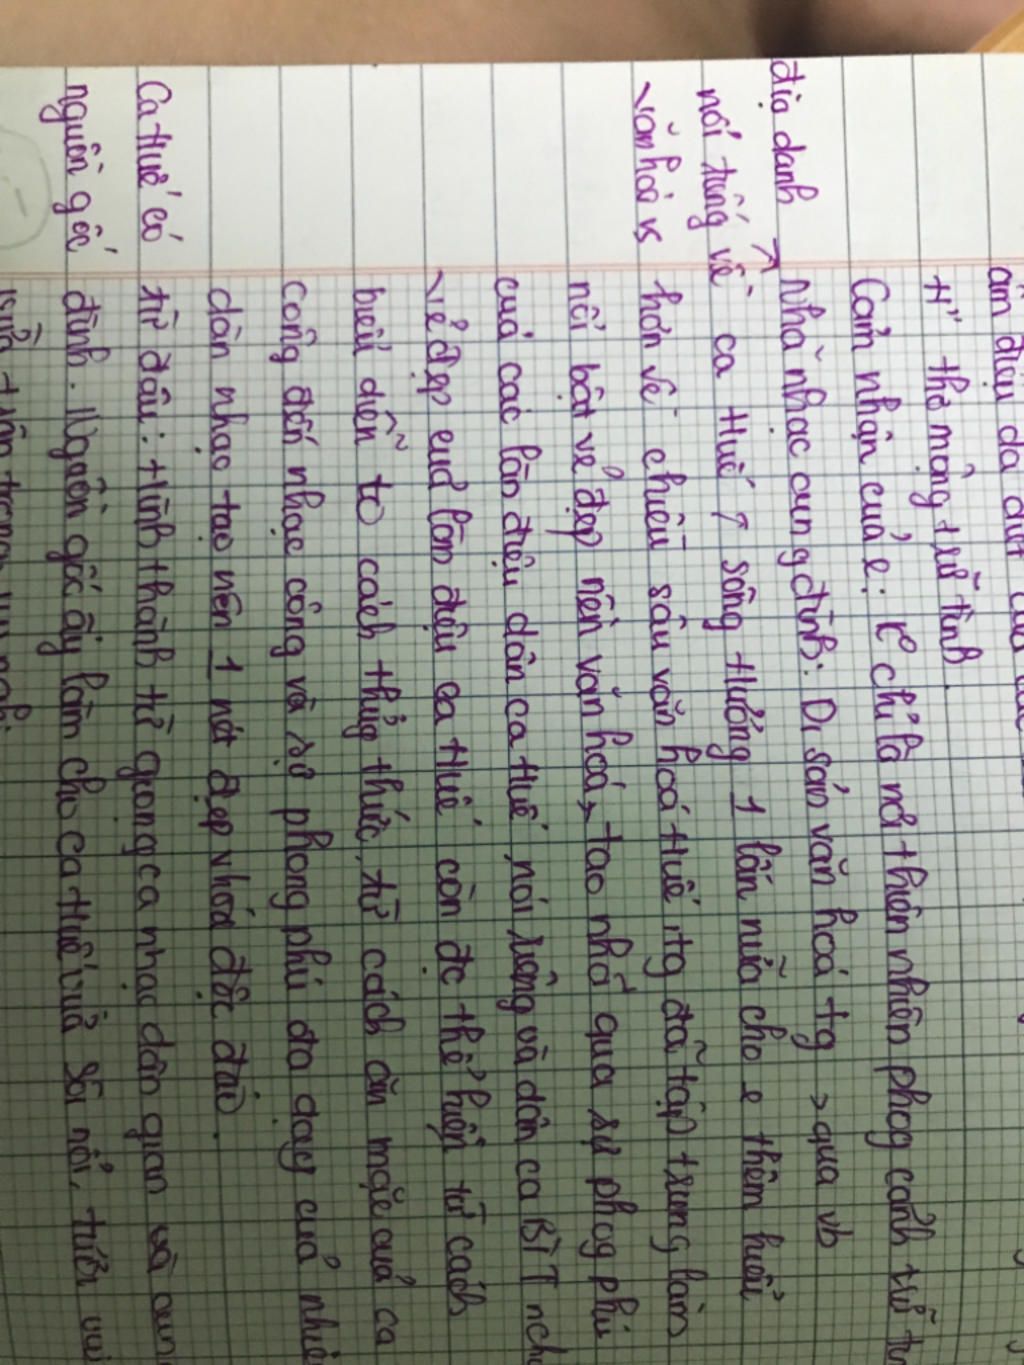 âm điệu da diết của các
tì" thơ mộng trữ tình.
Cảm nhận của e: k° chỉ là nơi thiên nhiên phog cảnh trữ tì
địa danh ↗ Nhã nhạc cung đình: Di sản văn hoá tg > qua vb
nổi tiếng về ca Huế ↑ sông Hương 1 lần nữa cho e thêm hiểu
văn hoá vs hơn về chiều sâu văn hoá Huế, tg đã tập trung làm
nổi bật vẻ đẹp nền văn hoá > tao nhã qua sự phog phú
của các làn điệu dân ca Huế, nói riêng và dân ca BTT nch
vẻ đẹp của làn điệu ca Huế còn đc thể hiện từ cách
biểu diễn to cách thưởng thức, từ cách ăn mặc của ca
công đến nhạc công và sự phong phú đa dạng của nhiề
dàn nhạc tạo nên 1 nét đẹp vhoá độc đáo.
Ca Huế có từ đâu: Hình thành từ giọng ca nhạc dân gian và cun
nguồn gốc đình. Nguồn gốc ấy làm cho ca Huế vừa sôi nổi, tươi vui
vừa trân trọng